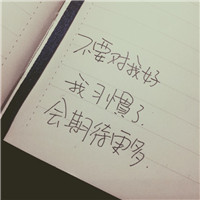 不要对我好
我习慣了.
会期後更多.